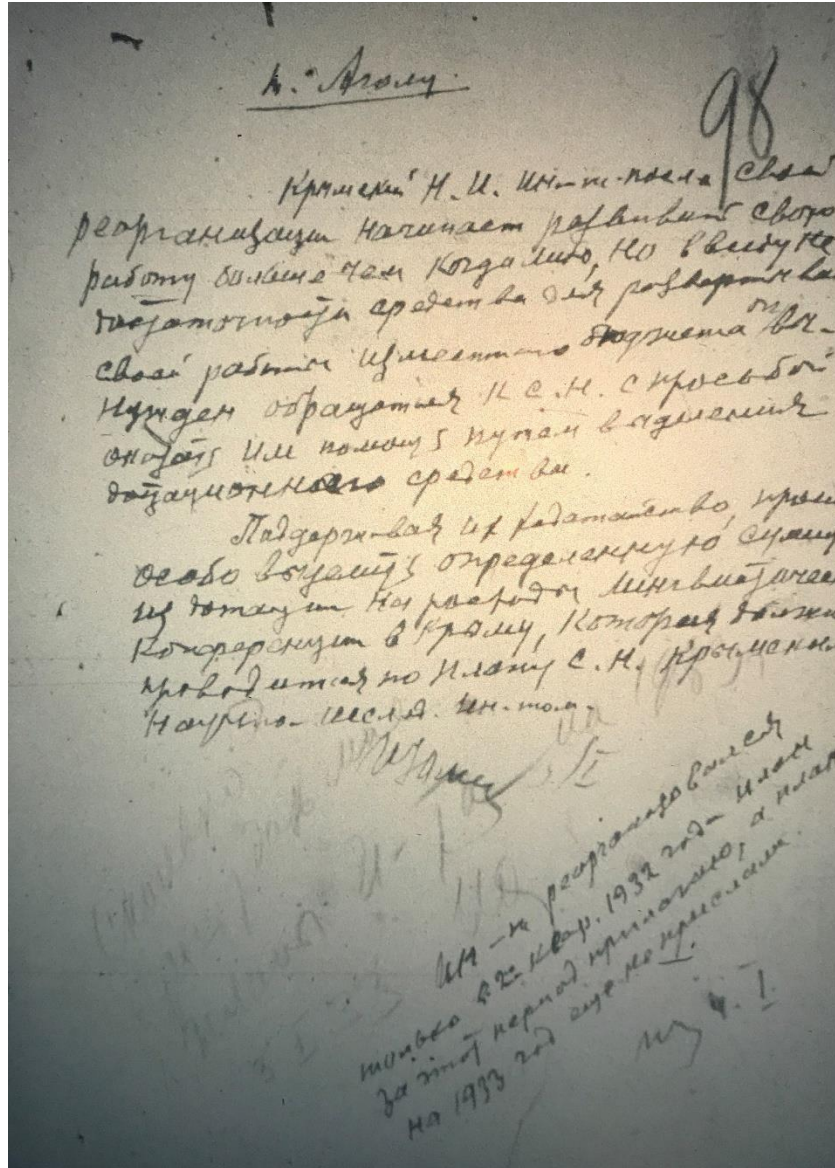 т. Аголу.
98
Крымский Н. И. Ин-т после свое
реорганизации начинает развивать свою
работу больше чем когда либо, но ввиду не
достаточности средства для разверты
своей работы из местного бюджета он вы-
нужден обращаться к С.Н. с просьбой
оказать им помощь путем выделения
дотационного средства.
Поддерживая их ходатайство, прошу
особо выделить определенную сумму
из дотации на расходы лингвистичес
Конференции в Крыму, которая должн
проводится по плану С.Н. Крымским
Научно-исслед. Ин-том.
Ин-т реорганизовался
только в 2м квар. 1932 года план
за этот период прилагаю, а план
на 1933 год еще не прислали.
4.I.